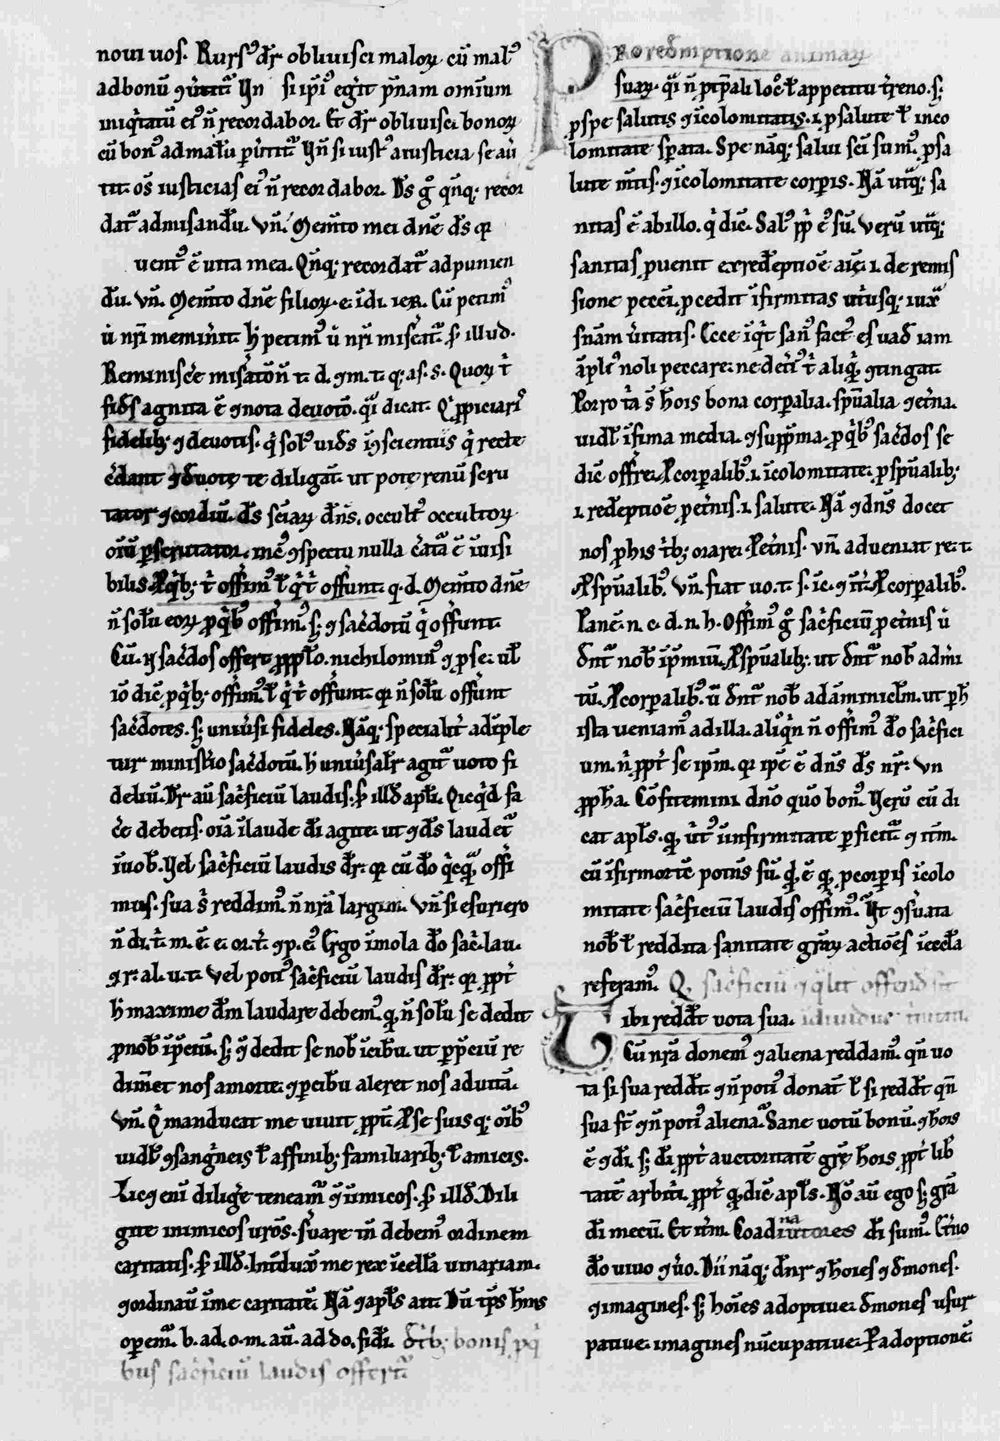 noui uos. Rursꝰ dr̄ obliuisci maloꝝ cū malꝰ
ad bonū ꝯ Vn̄ si ip̄i egit p̄nam omium
iniq̇tatū eiꝰ n̄ recordabor. Et dr̄ obliuisci bonoꝝ
cū bonꝰ ad malū Vn̄ si iustꝰ a iusticia se au̓
tit. os̄ iusticias eiꝰ n̄ recordabor. D̄s g̊ qn̄q; recor
dat᷑ ad misandū. Vn̄. Mem̄to mei dn̄e d̄s q̄
uentꝰ ē uita mea. Qn̄q; recordat᷑ ad punien
dū. Vn̄. Mem̄to dn̄e filioꝝ e. i di. ier. Cū petimꝰ
u̓ n̄ri memin̓it. h̓ petimꝰ u̓ n̄ri mis̓eat᷑. ẜ illud.
Reminisc̓e mis̓atōn̄ t. d. ꝯ m. t. q; a s. s. Quoꝝ t̓
fid̓s agnita ē ꝯ nota deuotō. q̄i dicat.
fidelib; ꝯ deuotis. q̇ solꝰ uid̓s ī sciencijs q̇ recte
c̓dant te diligāt. ut pote renū scru
tator ꝯ cordiū. d̄s sciaꝝ dn̄s. occultꝰ occultoꝝ
oīū p̱scrutator. ī cuiꝰ ꝯspectu nulla c̓ata ē īuisi
bilis. ꝓ q̇b; t̓ offim̓ꝰ ł q̇ t̓ offunt. q. d. Mem̄to dn̄e
n̄ solū eoꝝ ꝓ q̇bꝰ offim̓ꝰ. s; ꝯ sac̓dotū q̇ offunt.
Cū. n̄ sac̓dos offert ꝓ pplō. nichilominꝰ ꝯ ꝓ se. uł
iō dic̄ ꝓ q̇b; offim̓ꝰ ł q̇ t̓ offunt. q̄ n̄ solū offunt
sac̓dotes. s; uniu̓si fideles. Nāq; specialit̓ adīple
tur minist̓io sac̓dotū. h̓ uniu̓salr̄ agit᷑ uoto fi
deliū. Dr̄ aū sac̓ficiū laudis. ẜ illđ apłi. Qicq̇d fa
c̓e debetis. oīa ī laude di agite. ut ꝯ d̄s laudet᷑
ī uob̄. Vel sac̓ficiū laudis dr̄. q̄ cū d̄o q̇cq̄ offi
mus. sua s̓ reddim̓ꝰ. n̄ n̄ra largim᷑. Vn̄ si esuriero
n̄ di. t. m. ē. e. or. t. ꝯ p. eiꝰ. Ergo īmola d̄o sac̓. lau.
ꝯ r. al. u. t. Vel potiꝰ sac̓ficiū laudis dr̄. q̄ ppt̓
h̓ maxime d̄m laudare debemꝰ. q̄ n̄ solū se dedit
ꝓ nob̄ ī p̓ciū. s; ꝯ dedit se nob̄ ī cibū. ut p̱ p̓ciū re
dim̓et nos a morte. ꝯ p̱ cibū aleret nos ad uitā.
Vn̄. Q̇ manducat me uiuit ppt̓. ꝓ se suisq; oībꝰ
uidl̄ ꝯsang̓neis ł affinib; familiarib; ł amicis.
Licꝫ enī dilige̓ teneam᷑ ꝯ īimicos. ẜ illđ. Dili
gite inimicos uros. s̓uare tn̄ debemꝰ ordinem
caritatis. ẜ illđ. Introduxit me rex ī cellā uinariam.
ꝯ ordinauit ī me caritatē. Nā ꝯ apłs ait. Dū tp̄s habemꝰ
operemꝰ. b. ad. o. m. aū. ad do. fidi. bonis ꝓ q̇
bus sac̓ficiū laudis offert᷑
Pro redēmptione animaꝝ
suaꝝ. q̄i n̄ ꝓ tp̄ali loc̄ ł appetitu t̓reno. s;
ꝓ spe salutis ꝯ ī colomitatis. i. ꝓ salute ł inco
lomitate sp̱ata. Spe nāq; salui fc̄i sumꝰ. ꝓ sa
lute m̄tis. ꝯ ī colomitate corp̱is. Nā utq; sa
nitas ē ab illo. q̇ dic̄. Salꝰ ppl̓i ē sū. Verū utq;
sanitas ꝓuenit ex redēptiōe aīe. i. de remis
sione pecc̄i. ꝓcedit ī firmitas utiusq; iux̄
sn̄am u̓itatis. Ecce īq̇t san̄ꝰ factꝰ es uađ iam
āpliꝰ noli peccare. ne det̓iꝰ t̓ aliq̇d ꝯtingat.
Porro t̓a s̄ hoīs bona corp̱alia. sp̄ualia ꝯ et̓na.
uidl̄ īfima media. ꝯ supp̓ma. ꝓ q̇bꝰ sac̓dos se
dic̄ offr̓e. ꝓ corp̱alibꝰ. i. īcolomitate. ꝓ sp̄ualib;
i. redēptiōe. ꝓ et̓nis. i. salute. Nā ꝯ dn̄s docet
nos ꝓ his t̓b; orare. ꝓ et̓nis. vn̄. adueniat re. t.
ꝓ sp̄ualibꝰ. Vn̄. fiat uo. t. s. ī c. ꝯ ī t̓. ꝓ corp̱alibꝰ.
Panē. n. c. d. n. h. Offim̓ꝰ g̊ sac̓ficiū ꝓ et̓nis u̓
dn̄t᷑ nob̄ ī p̓miū. ꝓ sp̄ualib; ut dn̄t᷑ nob̄ ad m̓i
tū. ꝓ corp̱alibꝰ. u̓ dn̄t᷑ nob̄ ad ammiclm̄. ut p̱ h̓
ista ueniamꝰ ad illa. alioq̇n n̄ offim̓ꝰ d̄o sac̓fici
um. n̄ ppt̓ se ip̄m. q̄ ip̄e ē dn̄s d̄s n̄r. vn̄
ꝓpha. Cōfitemini dn̄o quō bonꝰ. Verū cū di
cat apłs. q̄ u̓tꝰ ī infirmitate p̱ficit᷑ ꝯ it̓m.
cū īfirmor tc̄ potens sū. q̇d ē q̄ ꝓ corp̱is īcolo
mitate sac̓ficiū laudis offim̓ꝰ. Vt ꝯs̓uata
nob̄ ł reddita sanitate gr̄aꝝ actiōes ī eccl̄a
referam̓ꝰ. Q̄ sac̓ficiū ꝯ q̄lit̓
Tibi reddt̄ uota sua.
Cū n̄ra donemꝰ ꝯ aliena reddamꝰ. qn̄ uo
ta si sua reddt̄. ꝯ n̄ potiꝰ donāt. ł si reddt̄ qn̄
sua st̄ ꝯ n̄ potiꝰ aliena. Sane uotū bonū. ꝯ hoīs
ē ꝯ di. s; di ppt̓ auctoritatē gr̄e. hoīs ppt̓ lib̓
tatē arbit̓i. ppt̓ q̄ dic̄ apłs. Nō aū ego s; gr̄a
di mecū. Et it̓m. Coadiutores di sumꝰ. Et̓no
d̄o uiuo ꝯ u̓o. Dii nāq; dn̄r ꝯ hoīes ꝯ d̓mones.
ꝯ imagines. s; hoīes adoptiue. d̓mones usur
patiue. imagines nūcupatiue. P̱ adoptionē